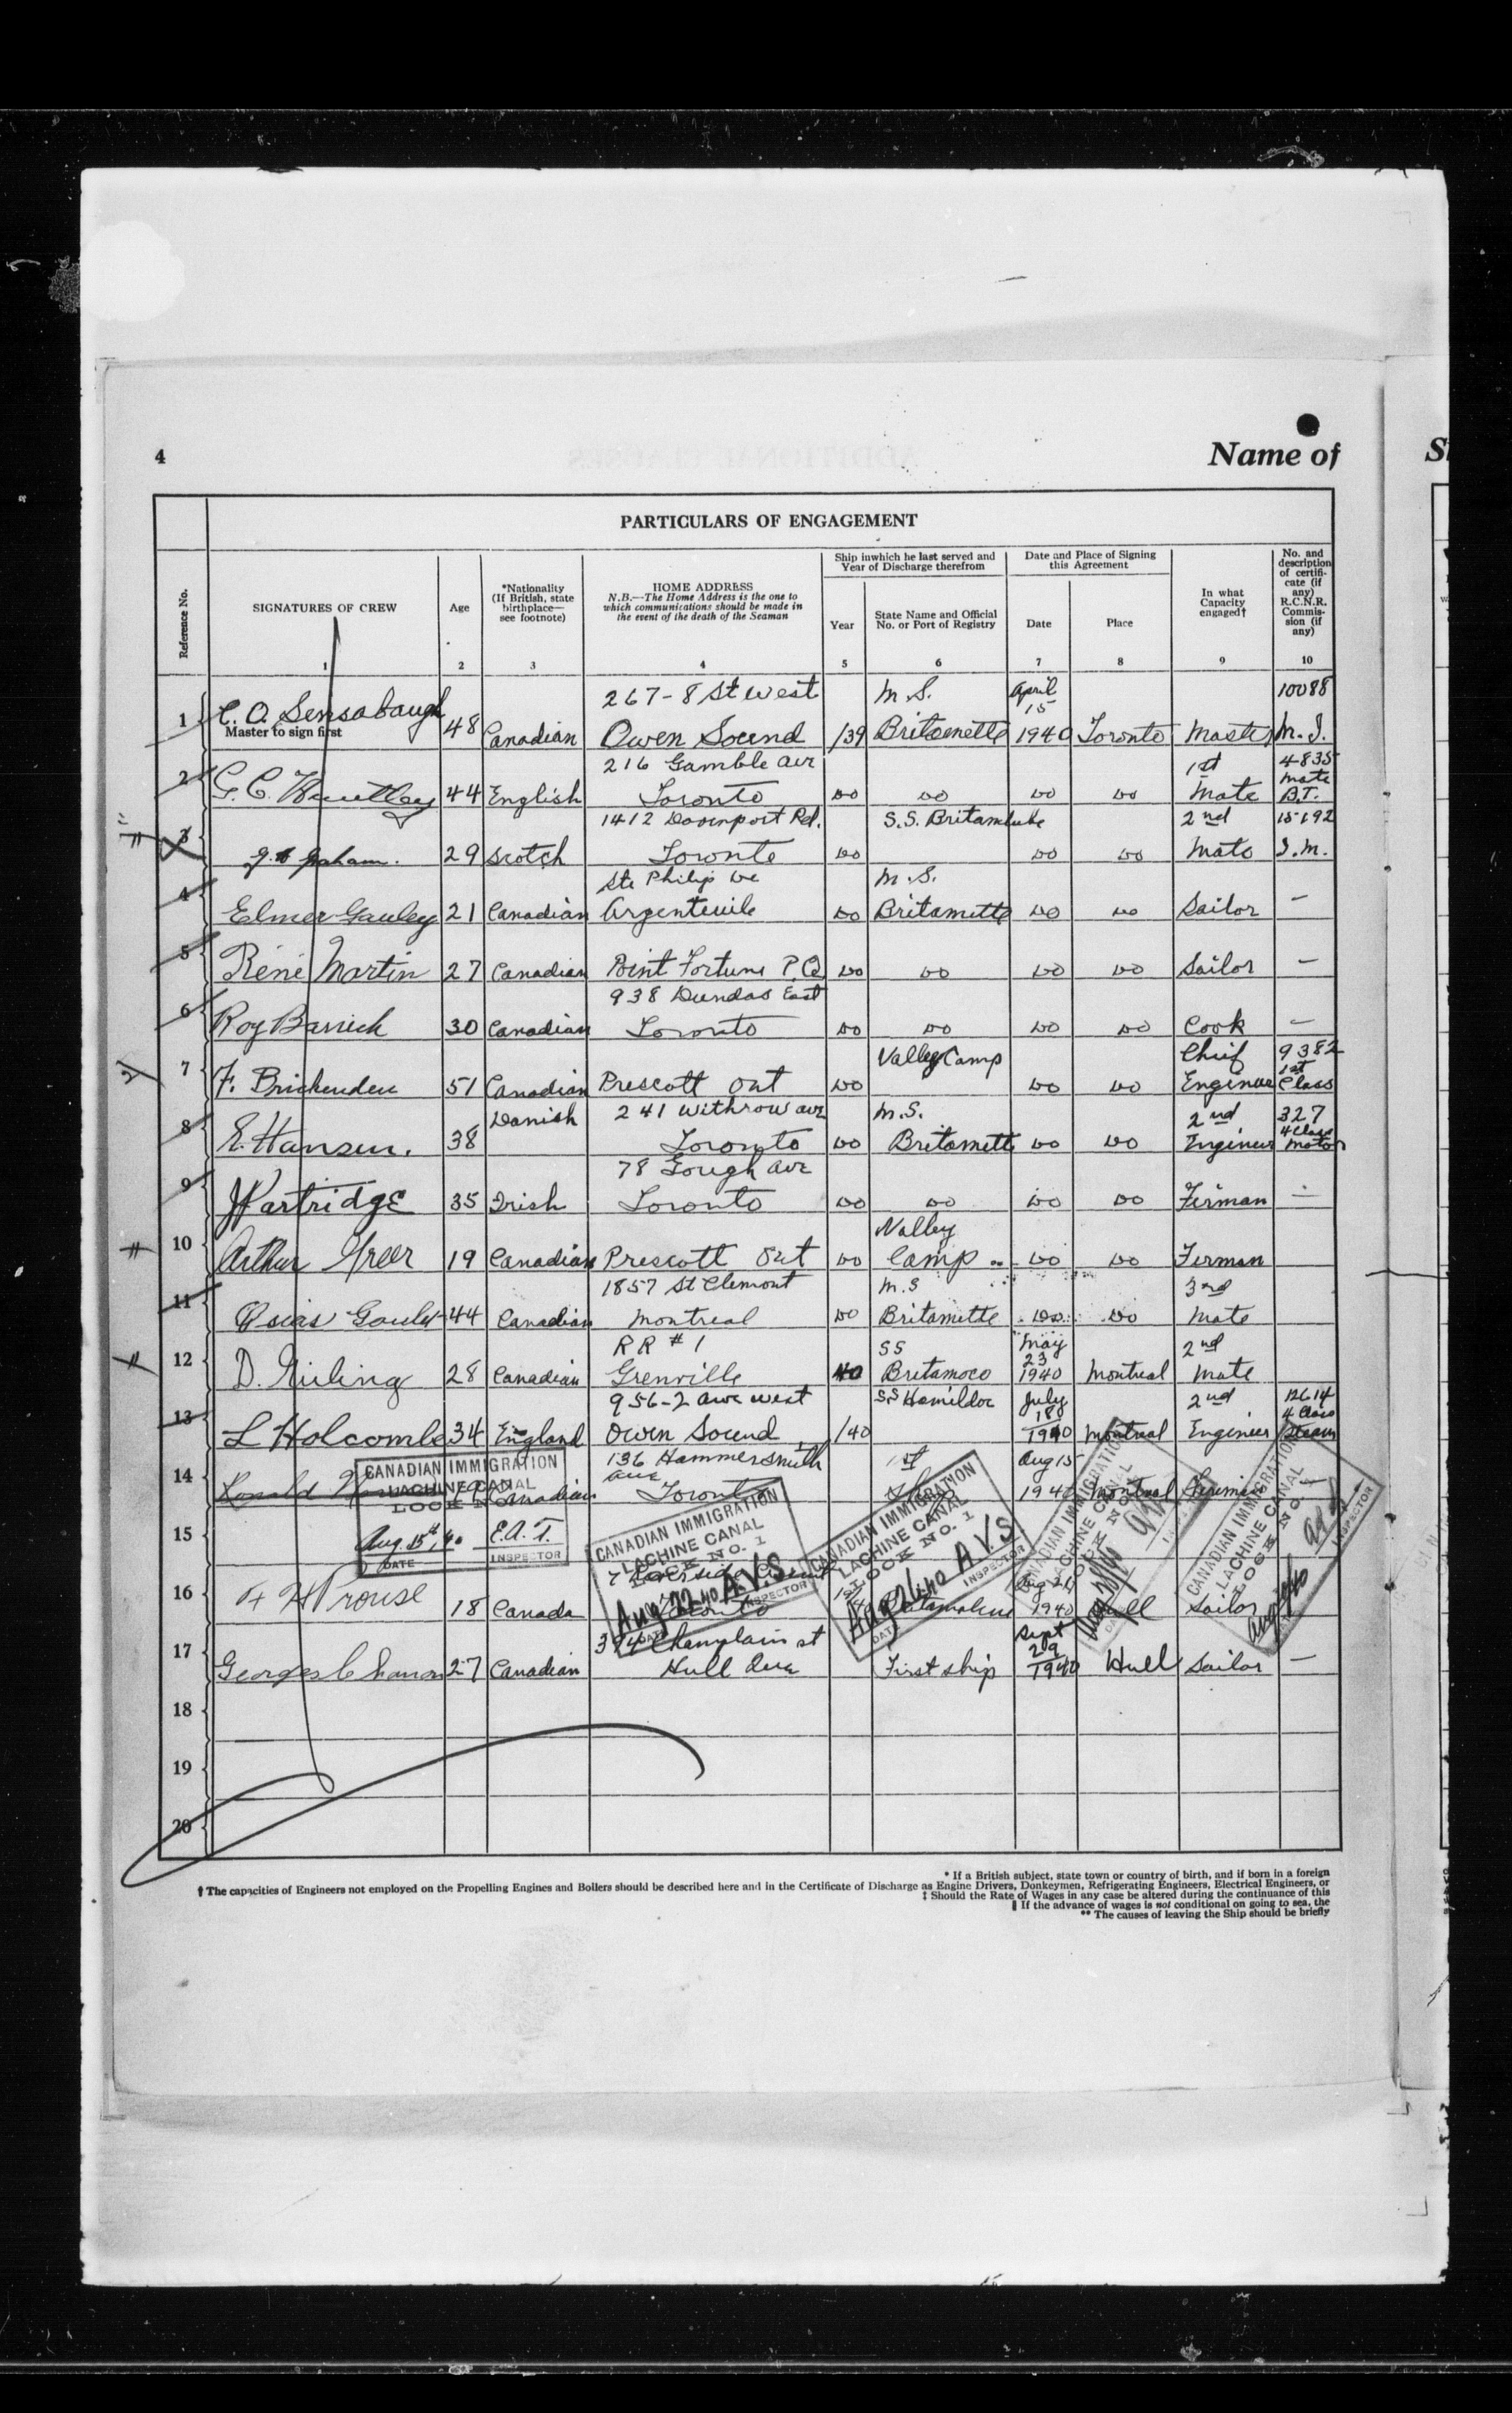 4
Name of
PARTICULARS OF ENGAGEMENT
Reference No.
SIGNATURES OF CREW
1
Age
2
*Nationality
(If British, state
birthplace—
see footnote)
3
HOME ADDRESS
N.B.—The Home Address is the one to
which communications should be made in
the event of the death of the Seaman
4
Ship inwhich he last served and
Year of Discharge therefrom
Year
5
State Name and Official
No. or Port of Registry
6
Date and Place of Signing
this Agreement
Date
7
Place
8
In what
Capacity
engaged†
9
No. and
description
of certifi-
cate (if
any)
R.C.N.R.
Commis-
sion (if
any)
10
267-8 St West M.S. April 15 10088
1 C. O. Sensabaugh 48 Canadian Owen Sound /39 Britamette 1940 Toronto Master M.I.
Master to sign first
216 Gamble ave 1st 4835 mate
2 G. C. 44 English Toronto Do Do Do Do Mate B.T.
1412 Davenport Rd. S.S. Britamlube 2nd 15192
3 Graham. 29 Scotch Toronto Do Do Do Mate I.M.
Ste Philip De M.S.
4 Elmer Gauley 21 Canadian Argenteuile Do Britamette Do Do Sailor —
5 René Martin 27 Canadian Point Fortune P.Q. Do Do Do Do Sailor —
938 Dundas East
6 Roy Barrick 30 Canadian Toronto Do Do Do Do Cook —
Valley Camp Chief 9382 1st
7 F. Brickenden 51 Canadian Prescott Ont Do Do Do Engineer Class
Danish 241 Withrow ave M.S. 2nd 327 4 Class
8 E. Hansen. 38 Toronto Do Britamette Do Do Engineer Motor
78 Gough ave
9 J Partridge 35 Irish Toronto Do Do Do Do Firman —
Valley
10 Arthur Greer 19 Canadian Prescott Ont Do Camp Do Do Firman
1857 St Clemont M.S 3rd
11 Osias Gouley 44 Canadian Montreal Do Britamette Do Do Mate
RR #1 SS May 23 2nd
12 D. 28 Canadian Grenville 40 Britamoco 1940 Montreal Mate
956-2 Ave West S.S Hamildoc July 18 2nd 12614 4 Class
13 L Holcombe 34 England Owen Sound /40 1940 Montreal Engineer Steam
136 Hammersmith ave 1st Aug 15
14 Ronald 19 Canadian Toronto 1940 Montreal Fireman —
CANADIAN IMMIGRATION
LACHINE CANAL
LOCK NO. 1
Aug. 15th, 40 E.A.T.
DATE INSPECTOR
15
CANADIAN IMMIGRATION
LACHINE CANAL
LOCK NO. 1
Aug 22 40 A.V.S
DATE INSPECTOR
CANADIAN IMMIGRATION
LACHINE CANAL
LOCK NO. 1
A.V.S
DATE INSPECTOR
CANADIAN IMMIGRATION
LACHINE CANAL
LOCK NO. 1
CANADIAN IMMIGRATION
LACHINE CANAL
LOCK NO. 1
INSPECTOR
16 Prouse 18 Canada Toronto 1940 Hull Sailor
394 Champlain st Sept 29
17 27 Canadian Hull Que First ship 1940 Hull Sailor —
18
19
20
* If a British subject, state town or country of birth, and if born in a foreign
† The capacities of Engineers not employed on the Propelling Engines and Boilers should be described here and in the Certificate of Discharge as Engine Drivers, Donkeymen, Refrigerating Engineers, Electrical Engineers, or
‡ Should the Rate of Wages in any case be altered during the continuance of this
‖ If the advance of wages is not conditional on going to sea, the
** The causes of leaving the Ship should be briefly